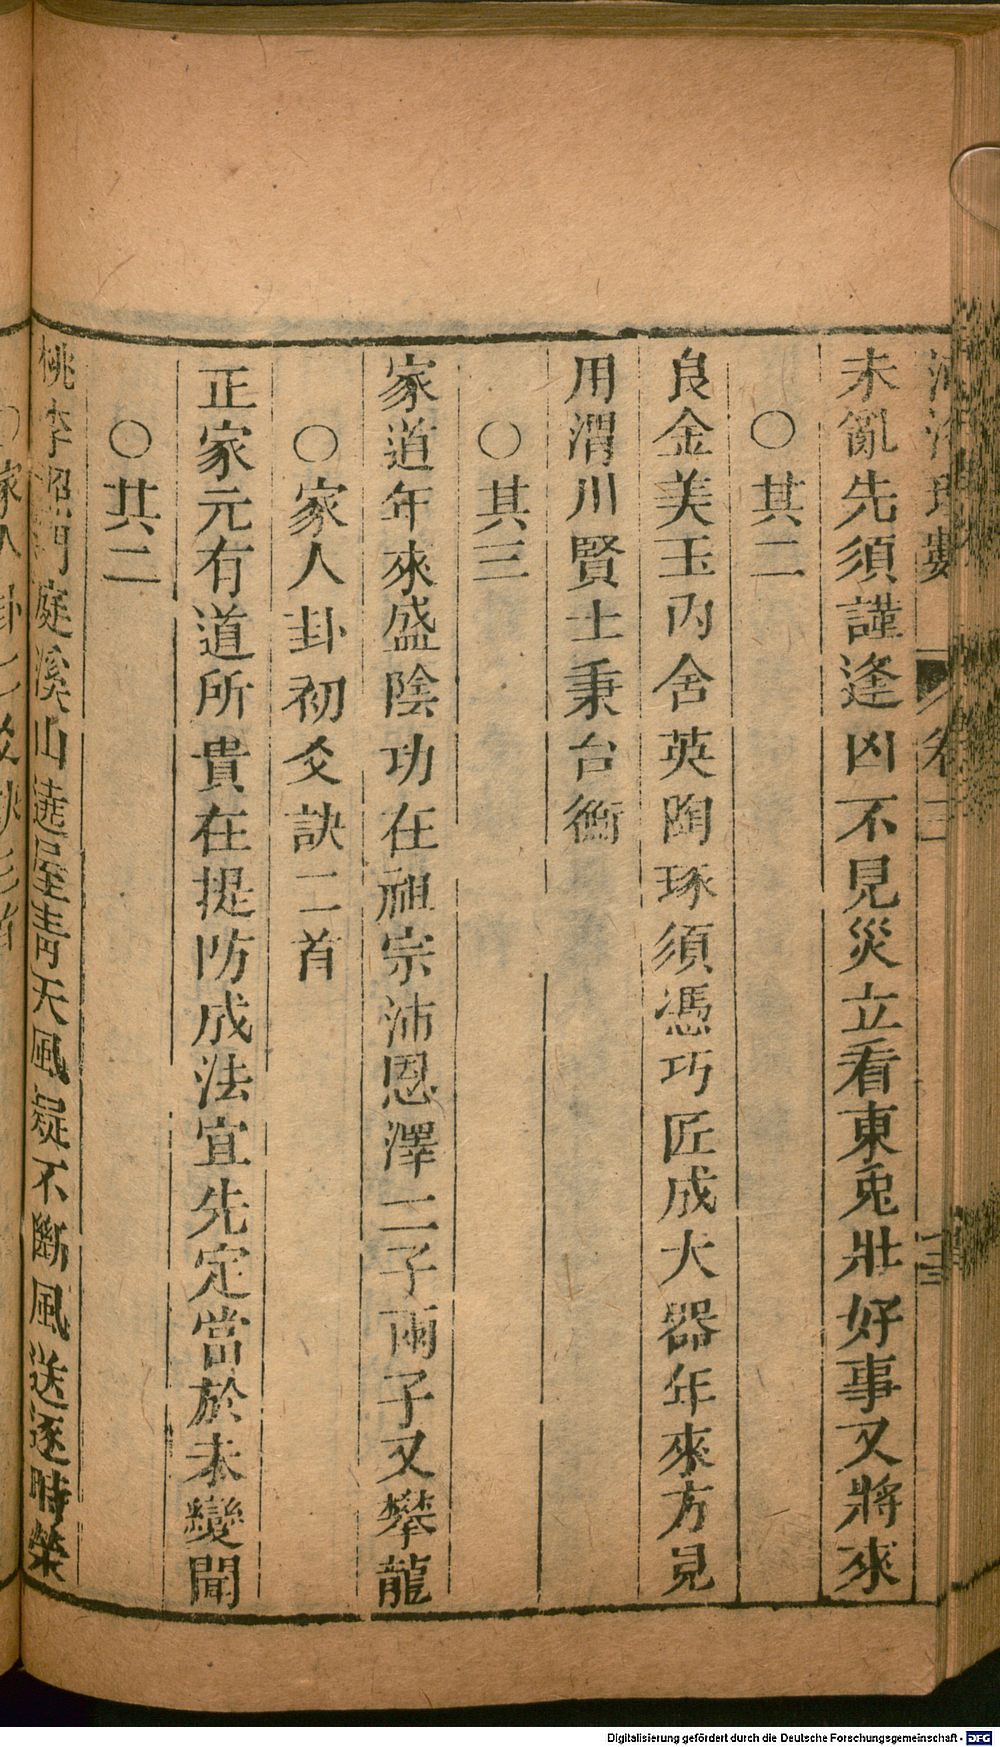 河洛理數 卷三
未亂先須謹逢凶不見災立看東兎壯好事又將來
○其二
良金美玉內含英陶琢須憑巧匠成大器年來方見
用渭川賢士秉台衡
○其三
家道年來盛陰功在祖宗沛恩澤二子兩子又攀龍
○家人卦初爻訣二首
正家元有道所貴在提防成法宜先定當於未變聞
○其二
桃李照門庭溪山遶屋靑天風凝不斷風送逐時榮
○家人卦二爻訣
Digitalisierung gefördert durch die Deutsche Forschungsgemeinschaft - DFG